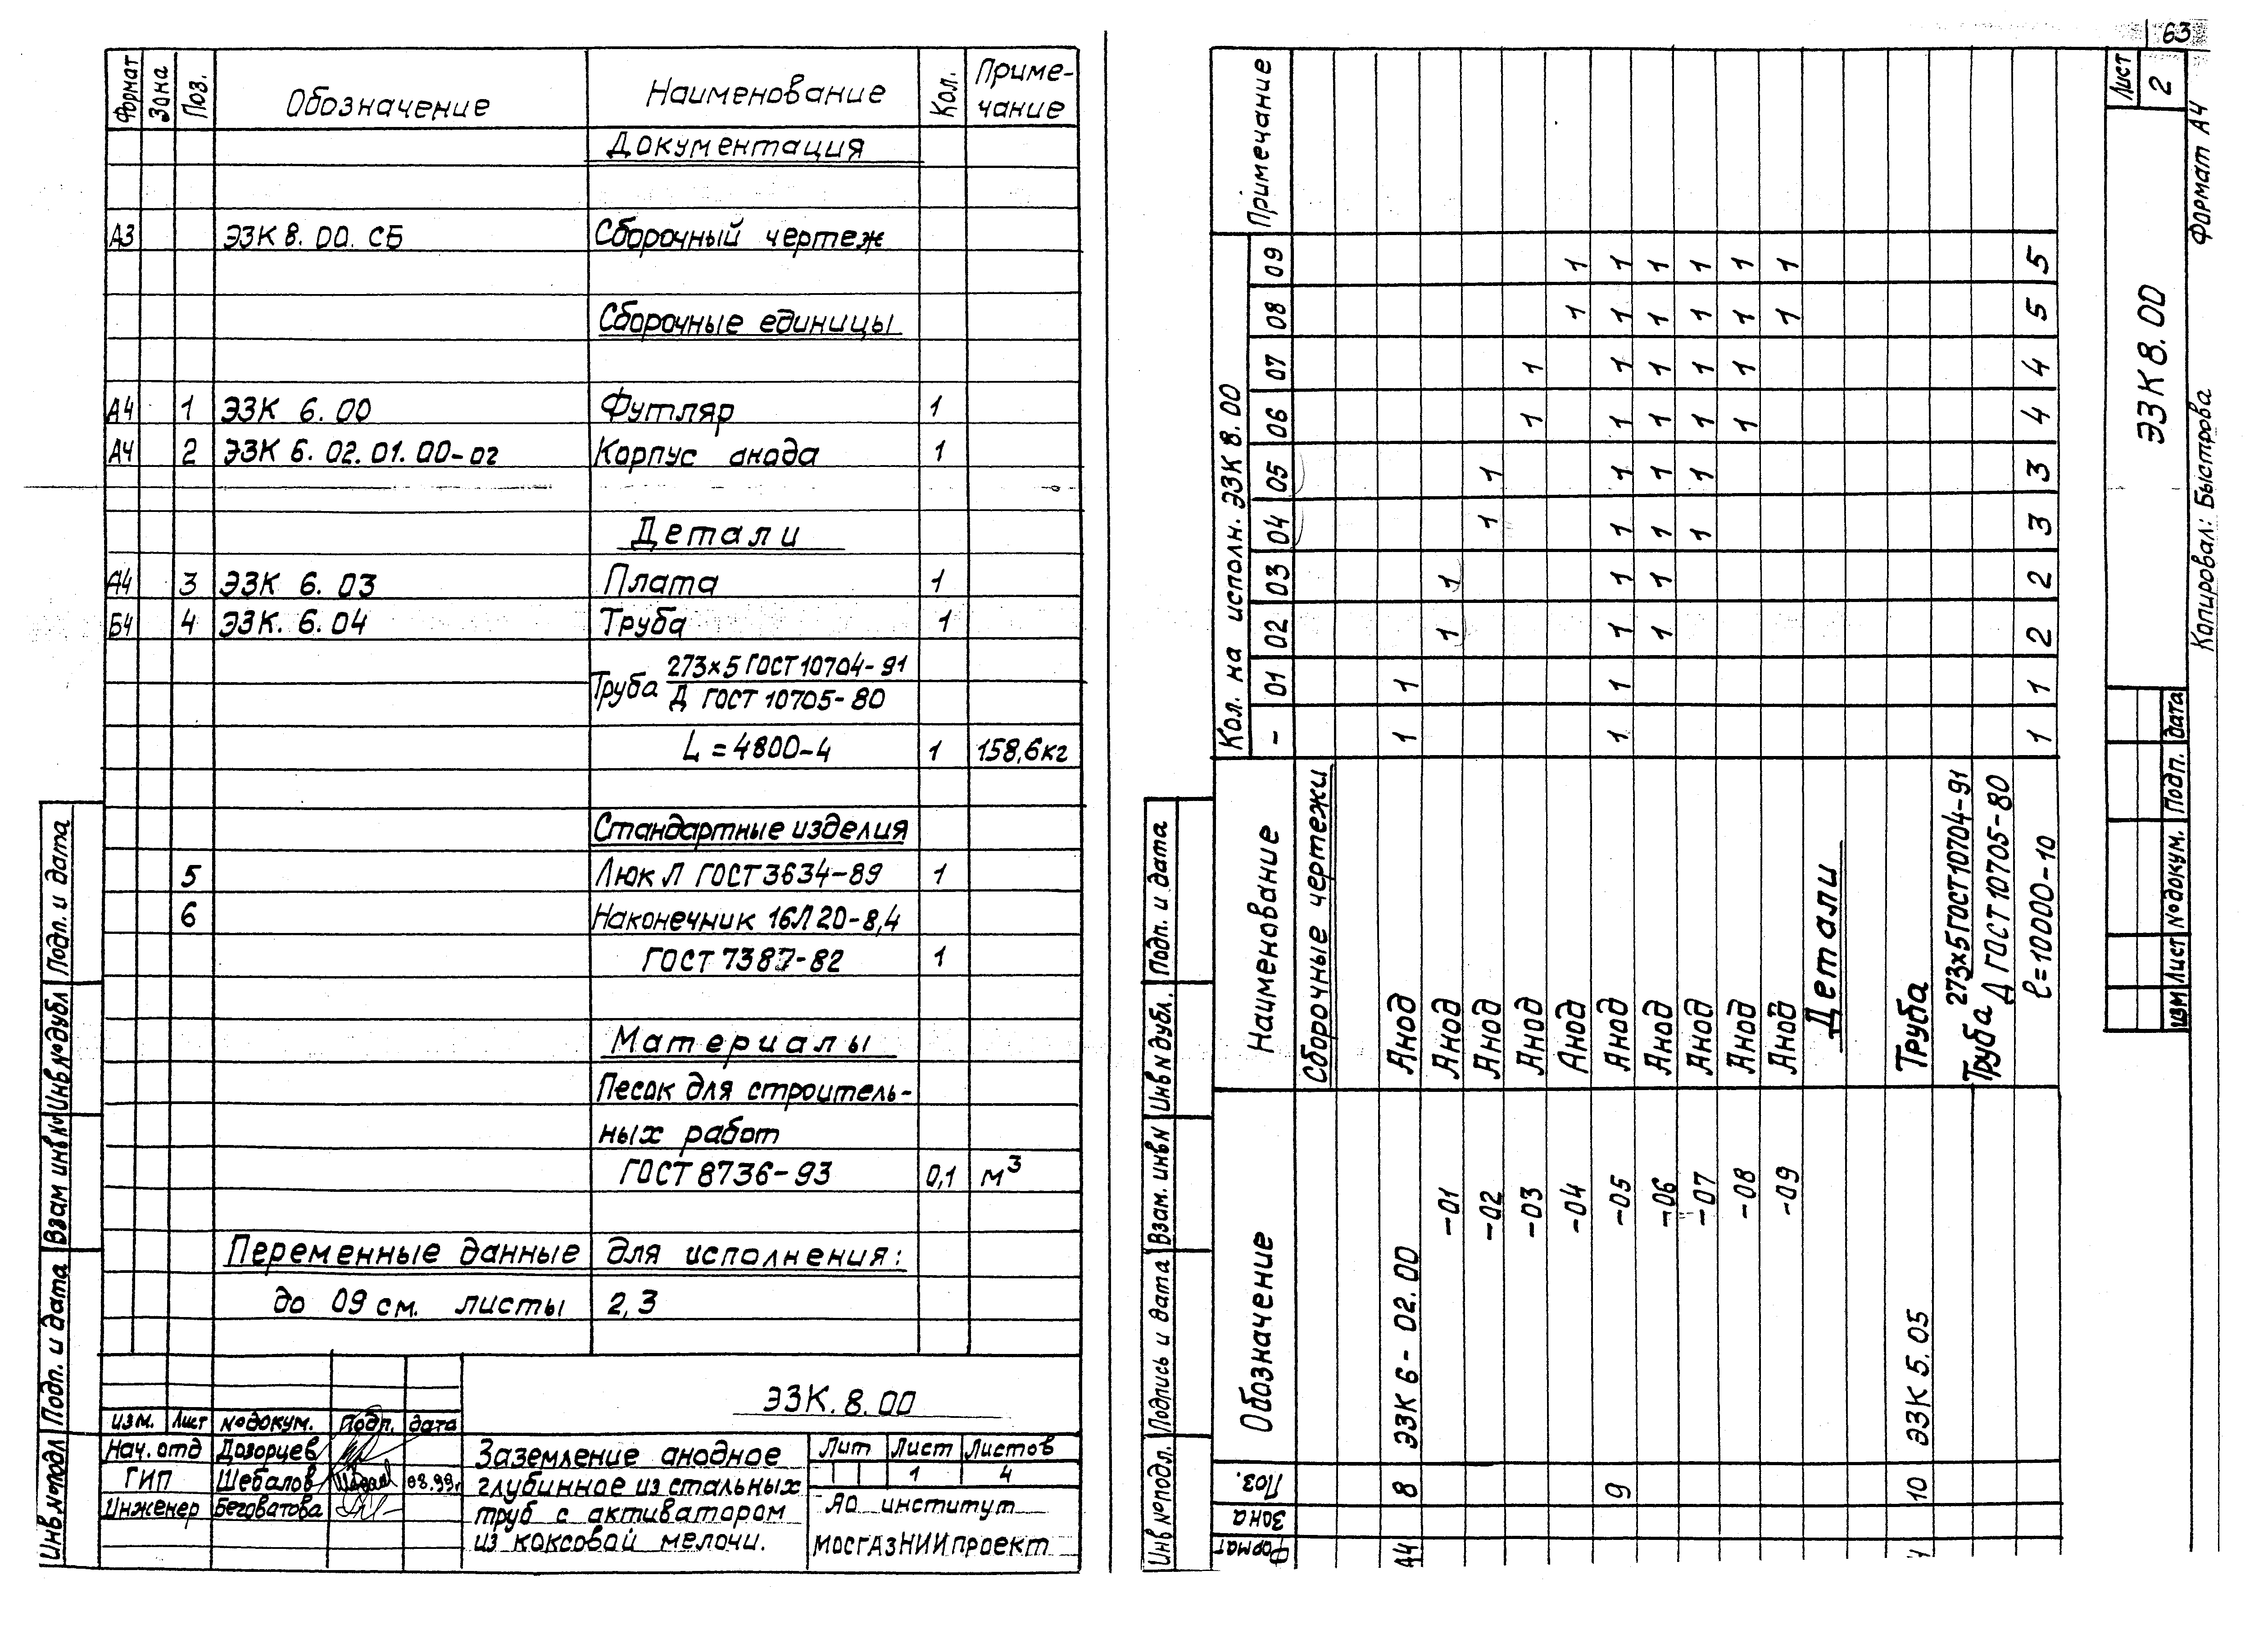 Формат Зона Поз. Обозначение Наименование Кол. Приме-
чание
Документация
А3 ЭЗК 8.00.СБ Сборочный чертеж
Сборочные единицы
А4 1 ЭЗК 6.00 Футляр 1
А4 2 ЭЗК 6.02.01.00-02 Корпус анода 1
Детали
А4 3 ЭЗК 6.03 Плата 1
Б4 4 ЭЗК. 6.04 Труба 1
Труба 273х5 ГОСТ 10704-91
Д ГОСТ 10705-80
L = 4800-4 1 158,6кг
Стандартные изделия
5 Люк Л ГОСТ 3634-89 1
6 Наконечник 16Л20-8,4
ГОСТ 7387-82 1
Материалы
Песок для строитель-
ных работ
ГОСТ 8736-93 0,1 м³
Переменные данные для исполнения:
до 09 см. листы 2,3
ЭЗК.8.00
изм. Лист №докум. Подп. дата
Нач. отд Дозорцев
ГИП Шебалов 08.99г
Инженер Беговатова
Заземление анодное
глубинное из стальных
труб с активатором
из коксовой мелочи.
Лит Лист Листов
1 4
АО институт
МОСГАЗНИИпроект
Инв №подл Подп. и дата Взам инв № Инв № дубл Подп. и дата
63
Формат Зона Поз. Обозначение Наименование Кол. на исполн. ЭЗК 8.00 Примечание
- 01 02 03 04 05 06 07 08 09
Сборочные чертежи
А4 8 ЭЗК 6-02.00 Анод 1 1
-01 Анод 1 1
-02 Анод 1 1
-03 Анод 1 1
-04 Анод 1 1
9 -05 Анод 1 1 1 1 1 1 1 1 1 1
-06 Анод 1 1 1 1 1 1 1 1
-07 Анод 1 1 1 1 1 1
-08 Анод 1 1 1 1
-09 Анод 1 1
Детали
10 ЭЗК 5.05 Труба
Труба 273х5 ГОСТ 10704-91
Д ГОСТ 10705-80
ℓ=10000-10 1 1 2 2 3 3 4 4 5 5
Инв №подл. Подпись и дата Взам. инв № Инв № дубл. Подп. и дата
изм Лист №докум. Подп. дата
ЭЗК 8.00
Лист
2
Копировал: Быстрова Формат А4